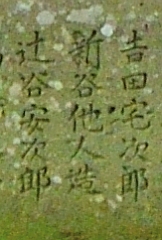 吉田宅次郎
新谷他人造
辻谷安次郎